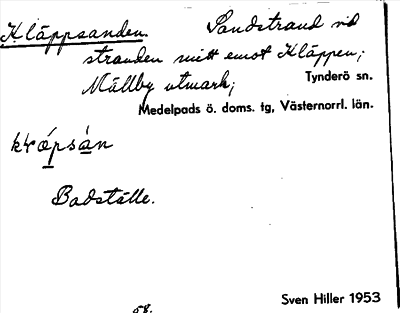 Kläppsanden. Sandstrand vid
stranden mitt emot Kläppen;
Mällby utmark; Tynderö sn.
Medelpads ö. doms. tg, Västernorrl. län.
Badställe.
Sven Hiller 1953
58.